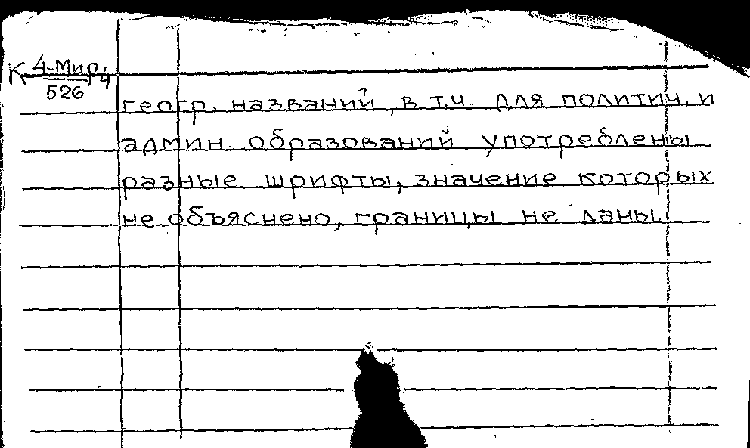 К 4-Мир,4
526
геогр. названий, в т.ч. для политич. и
админ. образований употреблены
разные шрифты, значение которых
не объяснено, границы не даны.